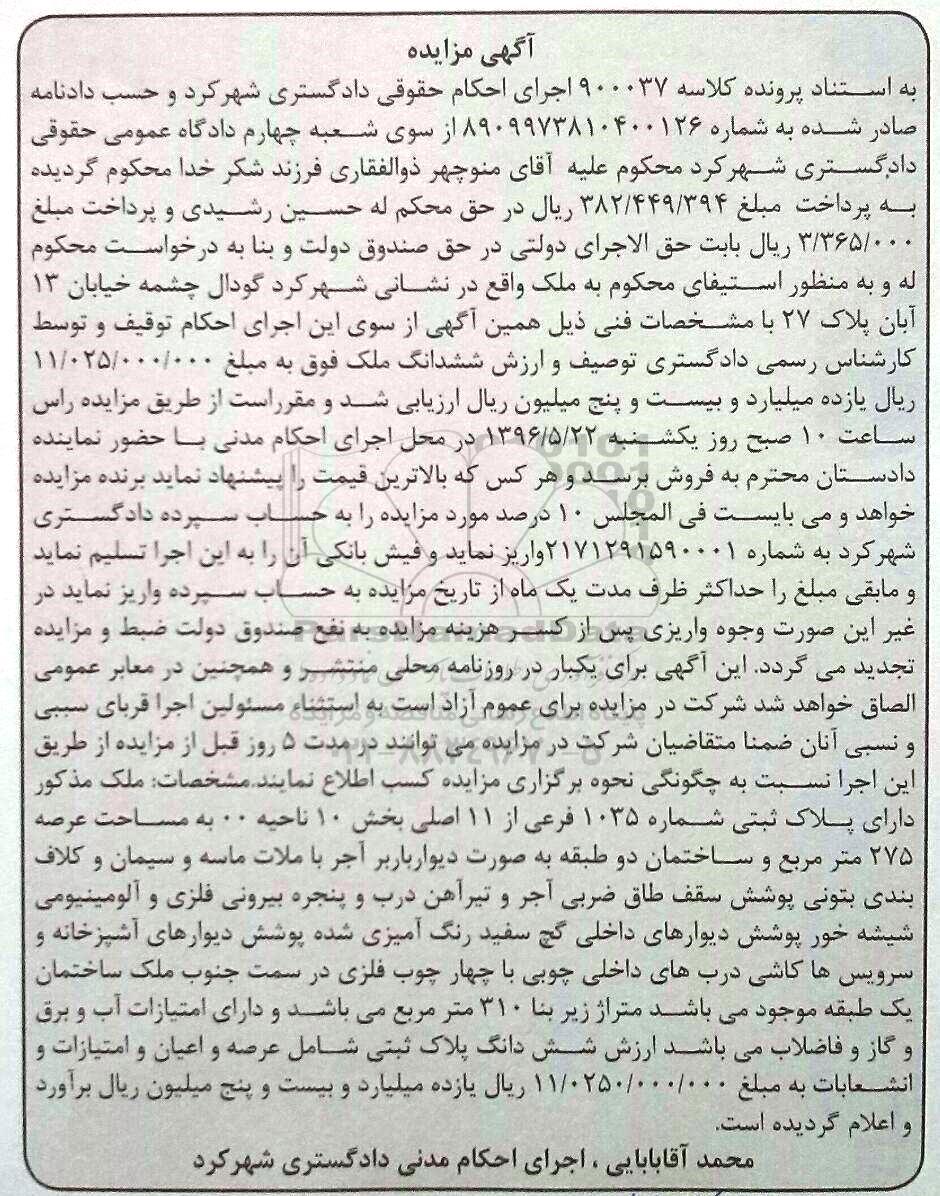 آگهی مزایده
به استناد پرونده کلاسه ۹۰۰۰۳۷ اجرای احکام حقوقی دادگستری شهرکرد و حسب دادنامه
صادر شده به شماره ۸۹۰۹۹۷۳۸۱۰۴۰۰۱۲۶ از سوی شعبه چهارم دادگاه عمومی حقوقی
دادگستری شهرکرد محکوم علیه آقای منوچهر ذوالفقاری فرزند شکر خدا محکوم گردیده
به پرداخت مبلغ ۳۸۲/۴۴۹/۳۹۴ ریال در حق محکم له حسین رشیدی و پرداخت مبلغ
۳/۳۶۵/۰۰۰ ریال بابت حق الاجرای دولتی در حق صندوق دولت و بنا به درخواست محکوم
له و به منظور استیفای محکوم به ملک واقع در نشانی شهرکرد گودال چشمه خیابان ۱۳
آبان پلاک ۲۷ با مشخصات فنی ذیل همین آگهی از سوی این اجرای احکام توقیف و توسط
کارشناس رسمی دادگستری توصیف و ارزش ششدانگ ملک فوق به مبلغ ۱۱/۰۲۵/۰۰۰/۰۰۰
ریال یازده میلیارد و بیست و پنج میلیون ریال ارزیابی شد و مقرراست از طریق مزایده راس
ساعت ۱۰ صبح روز یکشنبه ۱۳۹۶/۵/۲۲ در محل اجرای احکام مدنی با حضور نماینده
دادستان محترم به فروش برسد و هر کس که بالاترین قیمت را پیشنهاد نماید برنده مزایده
خواهد و می بایست فی المجلس ۱۰ درصد مورد مزایده را به حساب سپرده دادگستری
شهرکرد به شماره ۲۱۷۱۲۹۱۵۹۰۰۰۱واریز نماید و فیش بانکی آن را به این اجرا تسلیم نماید
و مابقی مبلغ را حداکثر ظرف مدت یک ماه از تاریخ مزایده به حساب سپرده واریز نماید در
غیر این صورت وجوه واریزی پس از کسر هزینه مزایده به نفع صندوق دولت ضبط و مزایده
تجدید می گردد. این آگهی برای یکبار در روزنامه محلی منتشر و همچنین در معابر عمومی
الصاق خواهد شد شرکت در مزایده برای عموم آزاد است به استثناء مسئولین اجرا قربای سببی
و نسبی آنان ضمنا متقاضیان شرکت در مزایده می توانند در مدت ۵ روز قبل از مزایده از طریق
این اجرا نسبت به چگونگی نحوه برگزاری مزایده کسب اطلاع نمایند.مشخصات: ملک مذکور
دارای پلاک ثبتی شماره ۱۰۳۵ فرعی از ۱۱ اصلی بخش ۱۰ ناحیه ۰۰ به مساحت عرصه
۲۷۵ متر مربع و ساختمان دو طبقه به صورت دیوارباربر آجر با ملات ماسه و سیمان و کلاف
بندی بتونی پوشش سقف طاق ضربی آجر و تیرآهن درب و پنجره بیرونی فلزی و آلومینیومی
شیشه خور پوشش دیوارهای داخلی گچ سفید رنگ آمیزی شده پوشش دیوارهای آشپزخانه و
سرویس ها کاشی درب های داخلی چوبی با چهار چوب فلزی در سمت جنوب ملک ساختمان
یک طبقه موجود می باشد متراژ زیر بنا ۳۱۰ متر مربع می باشد و دارای امتیازات آب و برق
و گاز و فاضلاب می باشد ارزش شش دانگ پلاک ثبتی شامل عرصه و اعیان و امتیازات و
انشعابات به مبلغ ۱۱/۰۲۵۰/۰۰۰/۰۰۰ ریال یازده میلیارد و بیست و پنج میلیون ریال برآورد
و اعلام گردیده است.
محمد آقابابایی ، اجرای احکام مدنی دادگستری شهرکرد